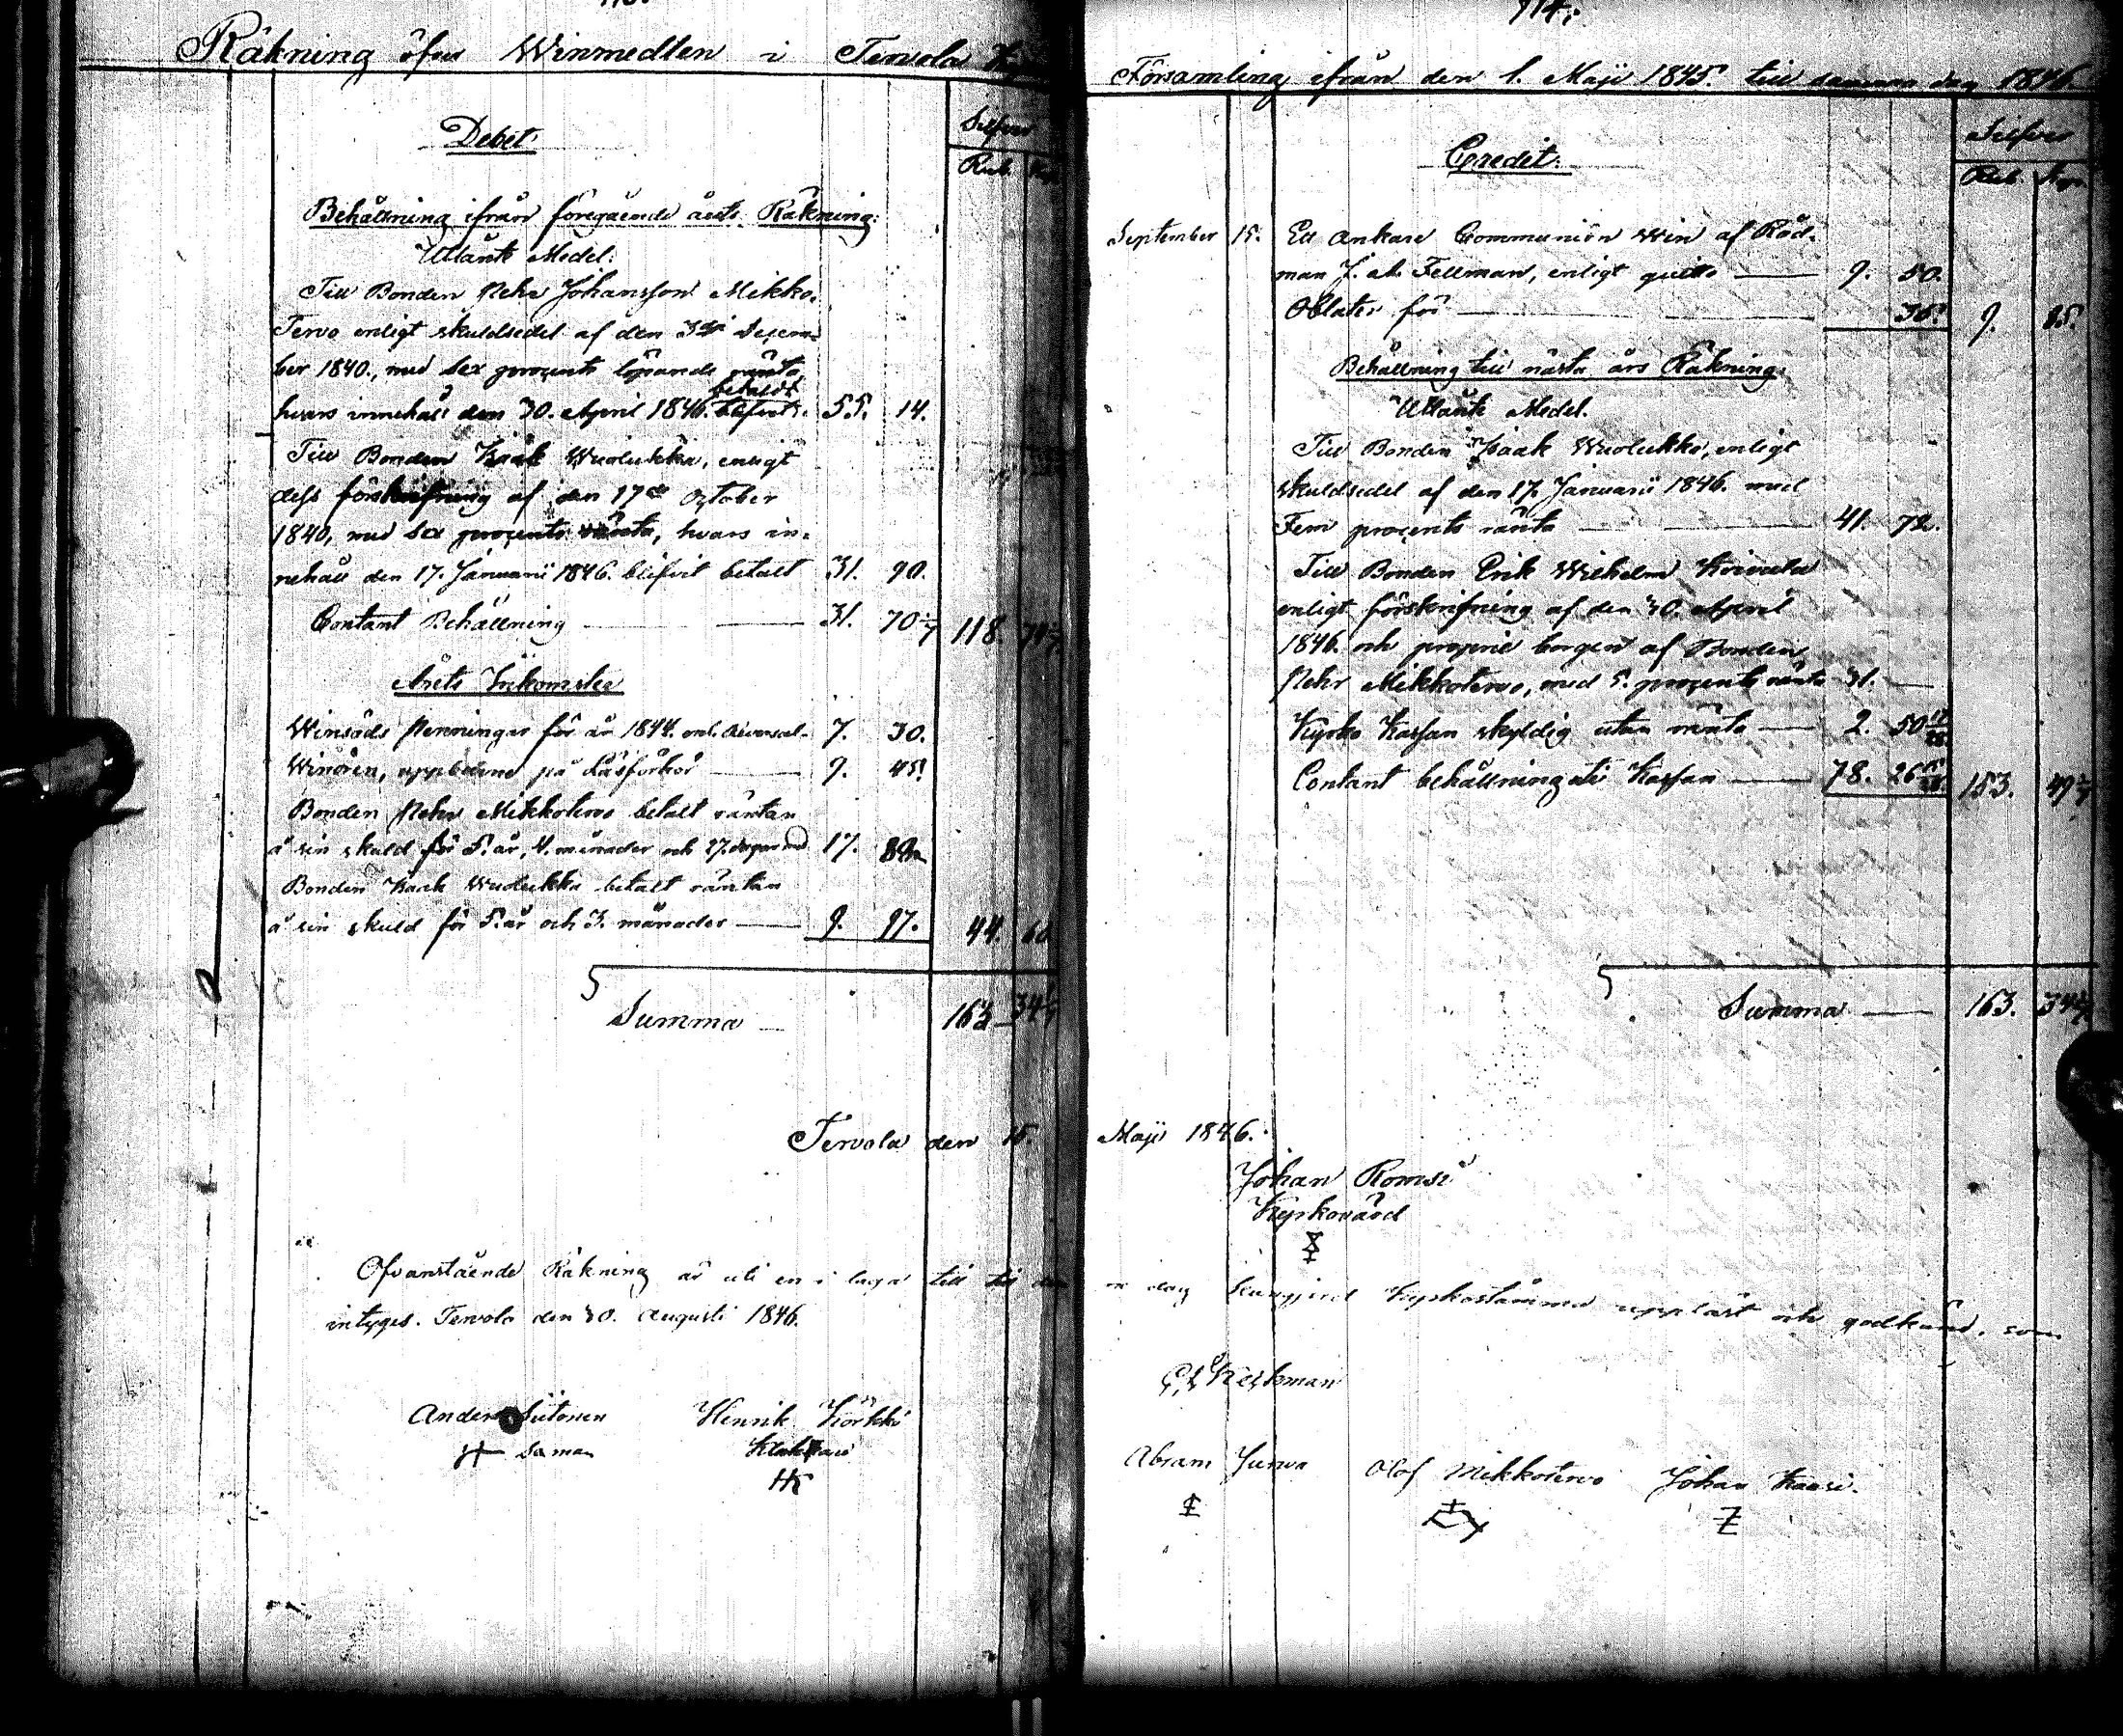 114.
Räkning öfver Winmedlen i Tervola
Församling ifrån den 1. Maji 1845. till samma dag 1846.
Debet.
Silfver
Rub. Kop.
Behållning ifrån föregående års Räkning:
Utlånte Medel:
Till Bonden Pehr Johansson Mikko-
Tervo enligt skuldsedel af den 3dje Decem-
ber 1840., med Sex procents löpande ränta
betaldt
hvars innehåll den 30. April 1846. blifvit. 55. 14.
Till Bonden Isaak Wuolukka, enligt
dess förskrifning af den 17de October
1840, med Sex procents ränta, hvars in-
nehåll den 17. Januarii 1846. blifvit betalt 31. 90.
Contant Behållning 31. 70 118. 74
Årets Inkomster
Winsäds Penningar för år 1844. enl. 7. 30.
Winören, uppburne på Läsförhör 9. 45.
Bonden Pehr Mikkotervo betalt räntan
å sin skuld för 5. år, 4. månader och 27. dagar med 17. 88
Bonden Isaak Wuolukka betalt räntan
å sin skuld för 5. år och 3. månader 9. 97. 44. 60
Summa 163 34
Tervola den 15.
Ofvanstående Räkning är uti en i laga tid
intyges. Tervola den 30. Augusti 1846.
Anders Siitonen Henrik Körkkö
HK
Credit.
Silfver
Rub. Kop.
September 15. Ett Ankare Communion Win af Råd-
man J. Fellman, enligt qvitto 9. 50.
Oblater för 35. 9. 85.
Behållning till nästa års Räkning.
Utlånte Medel.
Till Bonden Isaak Wuolukka, enligt
skuldsedel af den 17. Januarii 1846. med
Fem procents ränta 41. 72.
Till Bonden Erik Wilhelm Koivula
enligt förskrifning af den 30. April
1846. och proprie borgen af Bonden
Pehr Mikkotervo, med 5. procents ränta 31.
Kyrko Kassan skyldig utan ränta 2. 50
Contant behållning uti Kassan 78. 26 153. 49
Summa 163. 34
Maji 1846.
Johan Romsi
Kyrkovärd
dag kungjord Kyrkostämma uppläst och godkänd, som
Keckman
Abram Junva Olof Mikkotervo Johan Kaari.